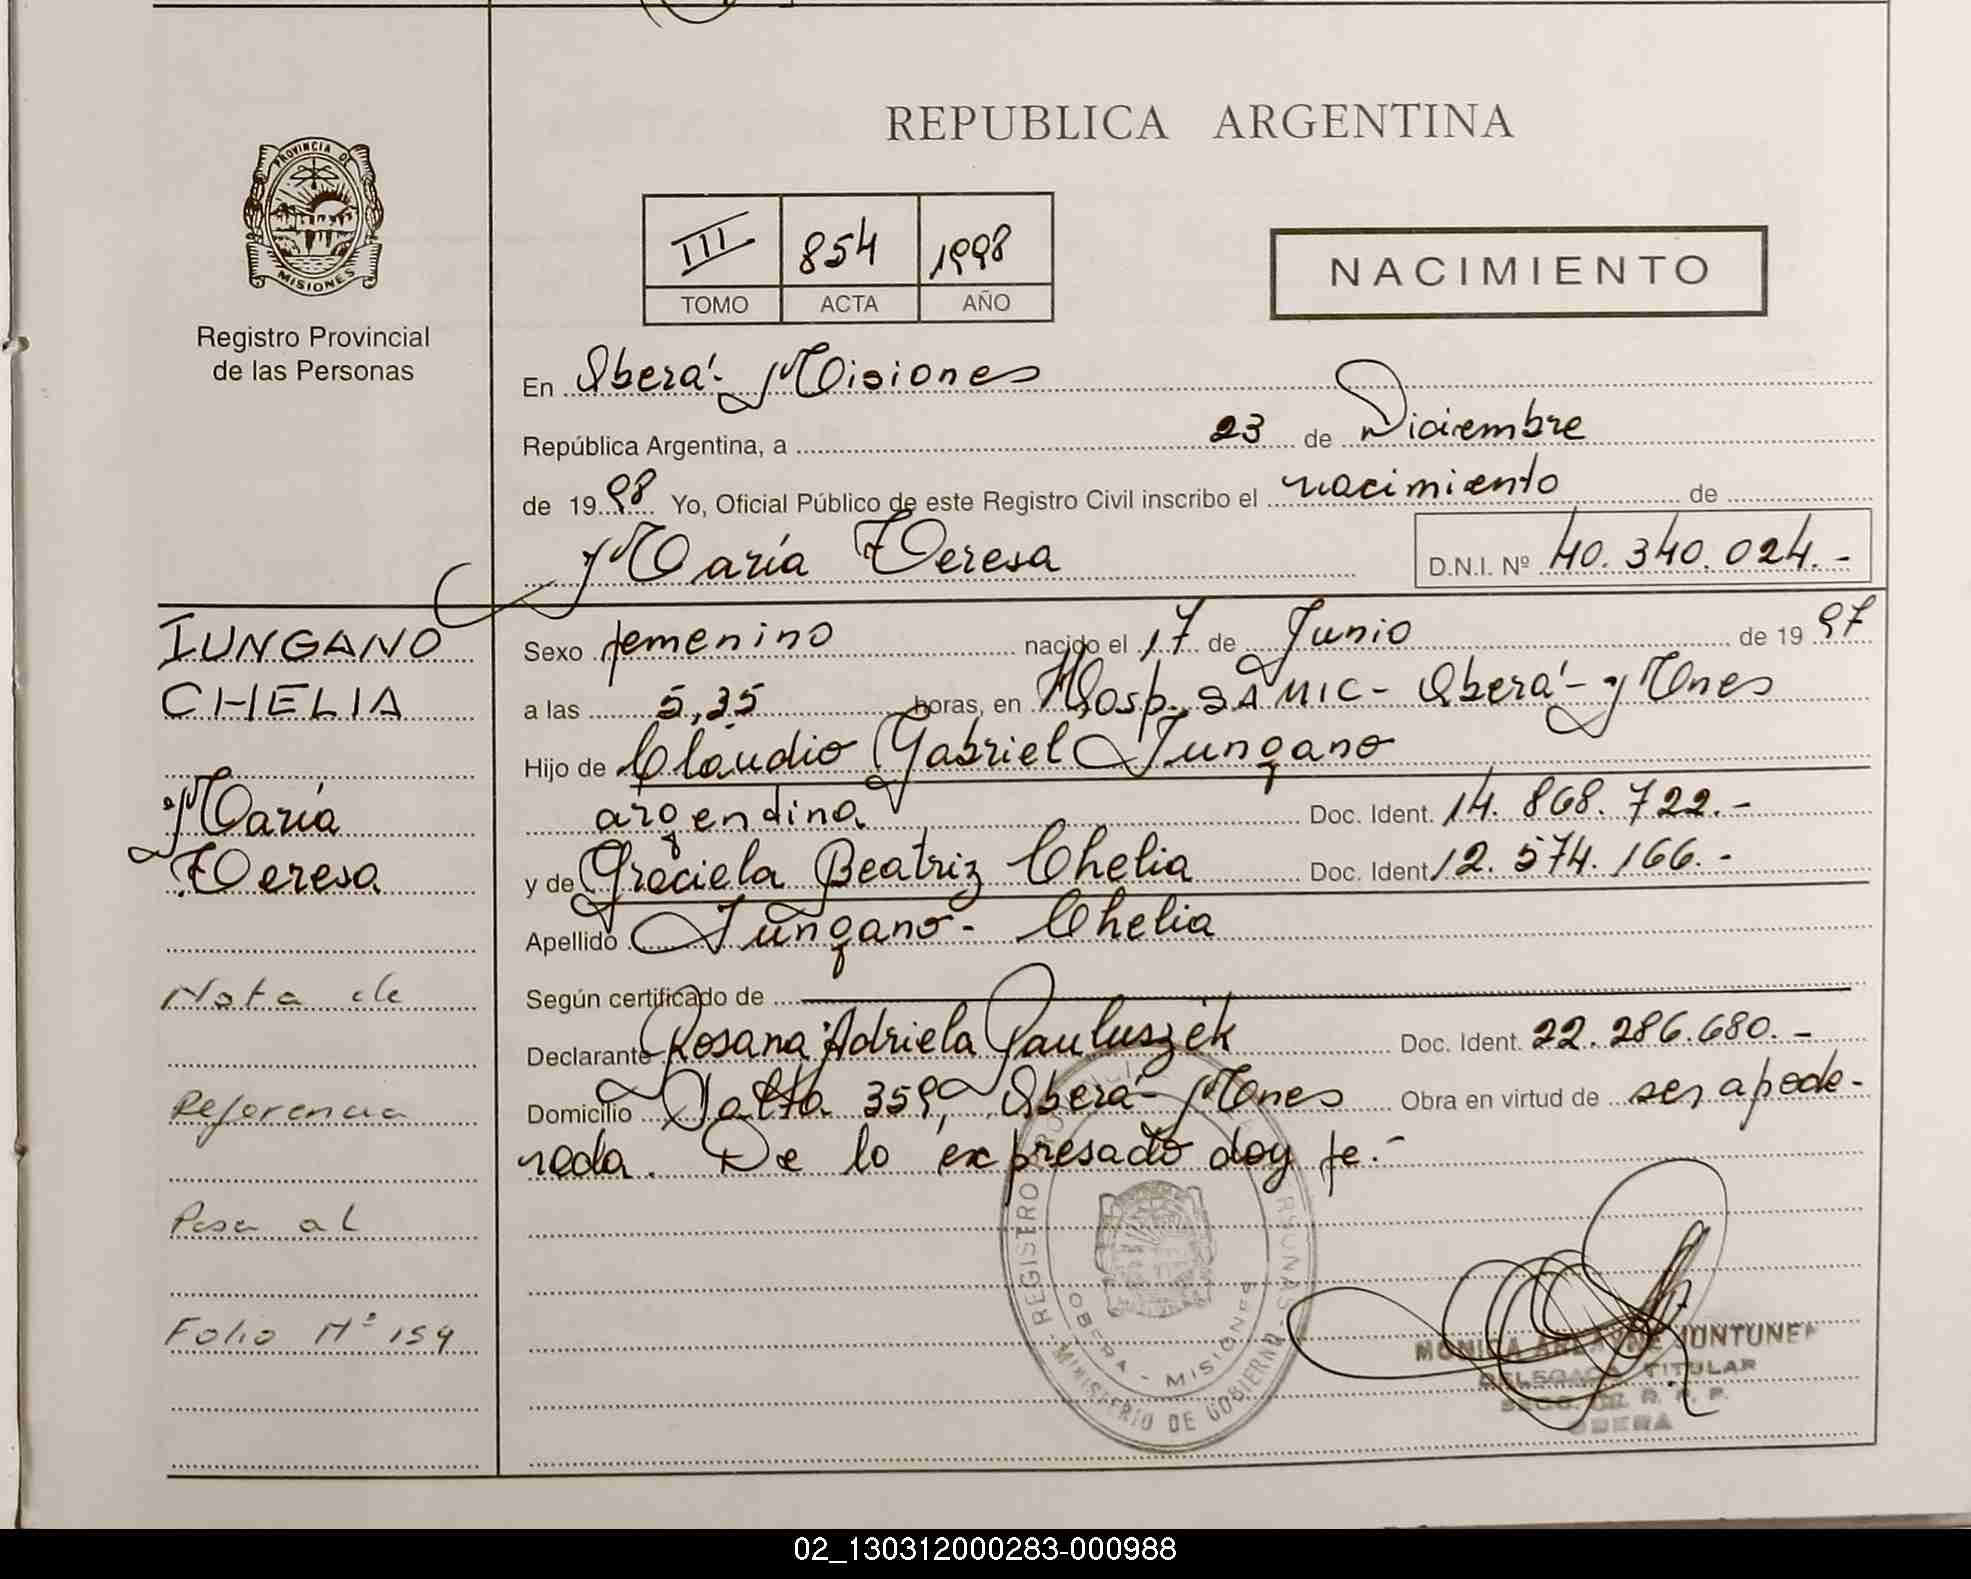 REPUBLICA ARGENTINA
PROVINCIA DE
MISIONES
Registro Provincial
de las Personas
III 854 1998
TOMO ACTA AÑO
NACIMIENTO
En Oberá - Misiones
República Argentina, a 23 de Diciembre
de 1998 Yo, Oficial Público de este Registro Civil inscribo el nacimiento de
María Teresa D.N.I. Nº 40.340.024.-
IUNGANO
CHELIA
María
Teresa
Nota de
Referencia
Pasa al
Folio Nº 154
Sexo femenino nacido el 17 de Junio de 1997
a las 5,35 horas, en Hosp. SAMIC - Oberá - Mnes
Hijo de Claudio Gabriel Iungano
argentina Doc. Ident. 14.868.722.-
y de Graciela Beatriz Chelia Doc. Ident 12.574.166.-
Apellido Iungano - Chelia
Según certificado de
Declarante Rosana Adriela Pauluszek Doc. Ident. 22.286.680.-
Domicilio Salta 359, Oberá - Mnes Obra en virtud de ser apode-
rada. De lo expresado doy fe.-
REGISTRO
OBERA - MISIONES
MINISTERIO DE GOBIERNO
MONICA
DELEGADA TITULAR
OBERA
02_130312000283-000988